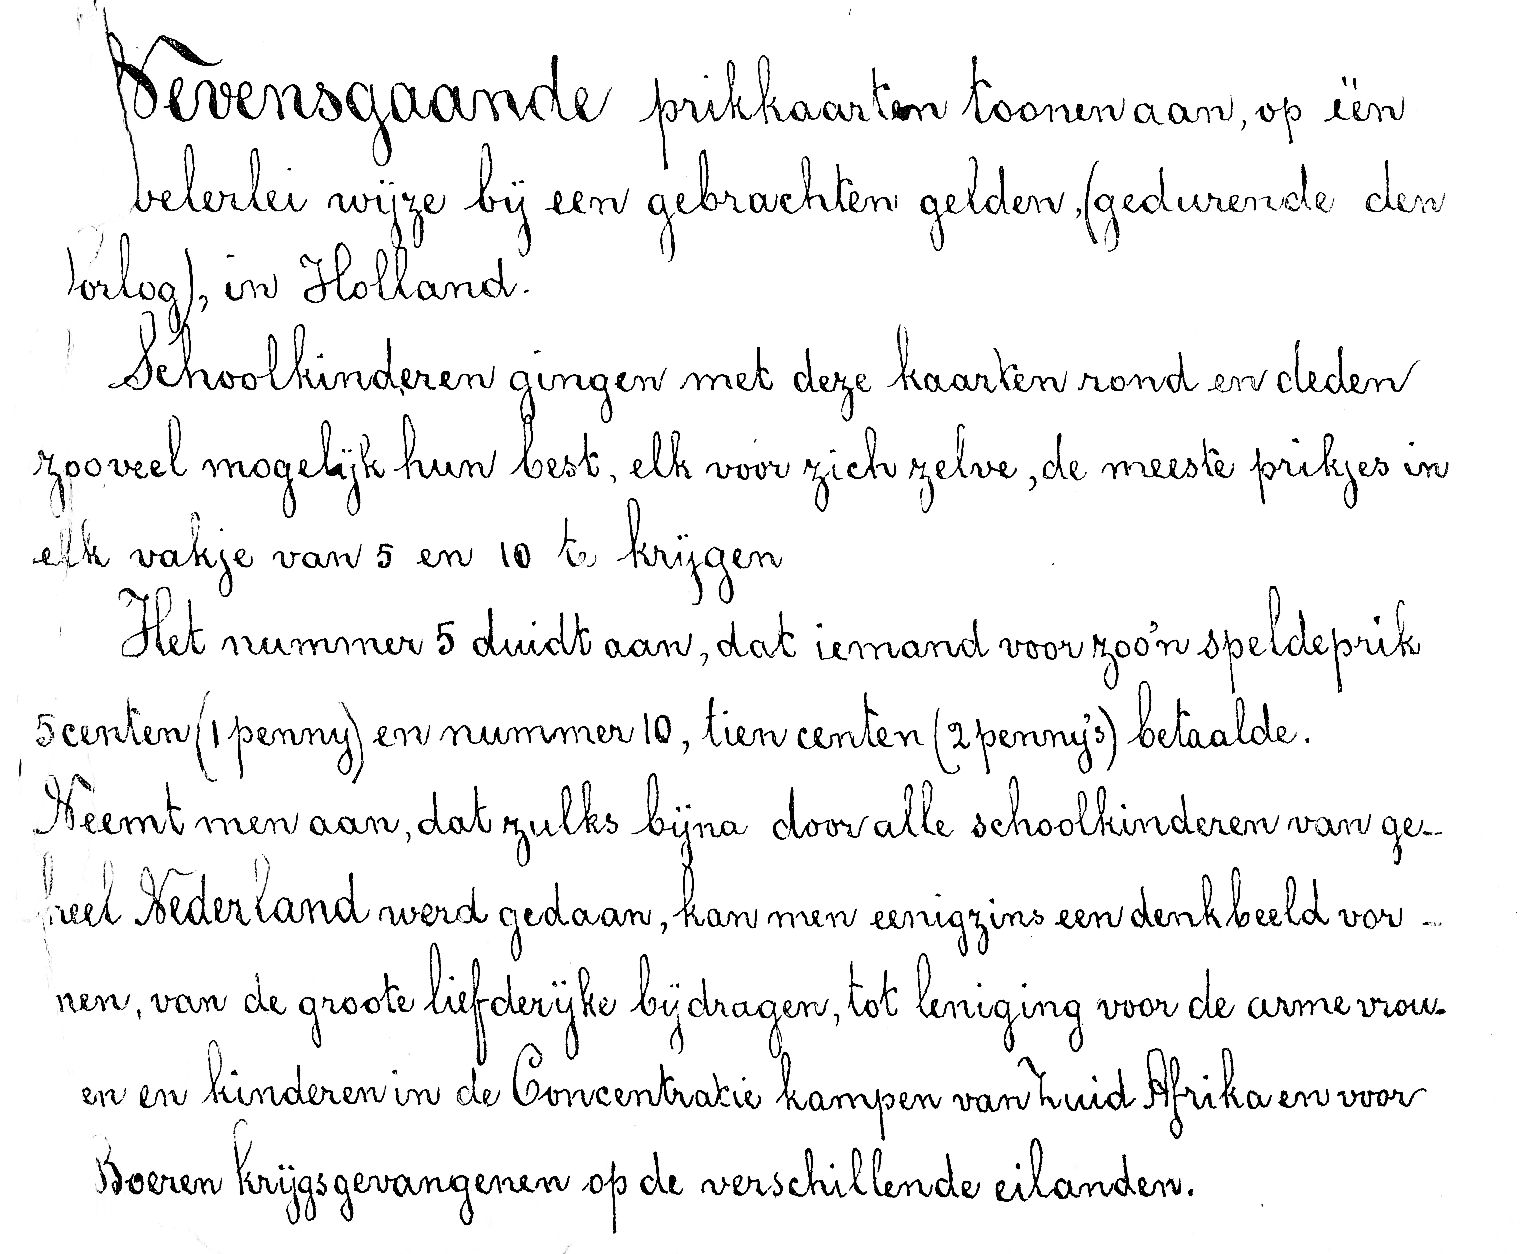 Nevensgaande prikkaarten toonen aan, op ëën
velerlei wijze bij een gebrachten gelden, (gedurende den
orlog), in Holland.
Schoolkinderen gingen met deze kaarten rond en deden
zooveel mogelijk hun best, elk voor zich zelve, de meeste prikjes in
elk vakje van 5 en 10 te krijgen
Het nummer 5 duidt aan, dat iemand voor zoo'n speldeprik
5 centen (1 penny) en nummer 10, tien centen (2 penny's) betaalde.
Neemt men aan, dat zulks bijna door alle schoolkinderen van ge-
heel Nederland werd gedaan, kan men eenigzins een denkbeeld vor-
nen, van de groote liefderijke bijdragen, tot leniging voor de arme vrou-
en en kinderen in de Concentratie kampen van Zuid Afrika en voor
Boeren krijgsgevangenen op de verschillende eilanden.